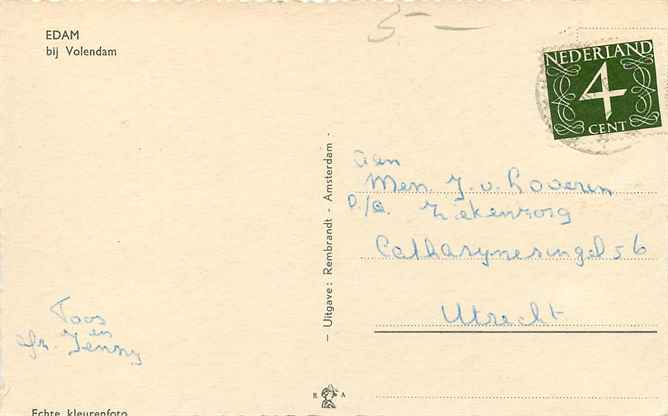 EDAM
bij Volendam
5 —
NEDERLAND
4
CENT
aan
Men. J. v. Looveren
P/a. Ziekenzorg
Catharynesingel 56
Utrecht
Toos
en
afz. Jenny
— Uitgave: Rembrandt - Amsterdam -
R A
Echte kleurenfoto